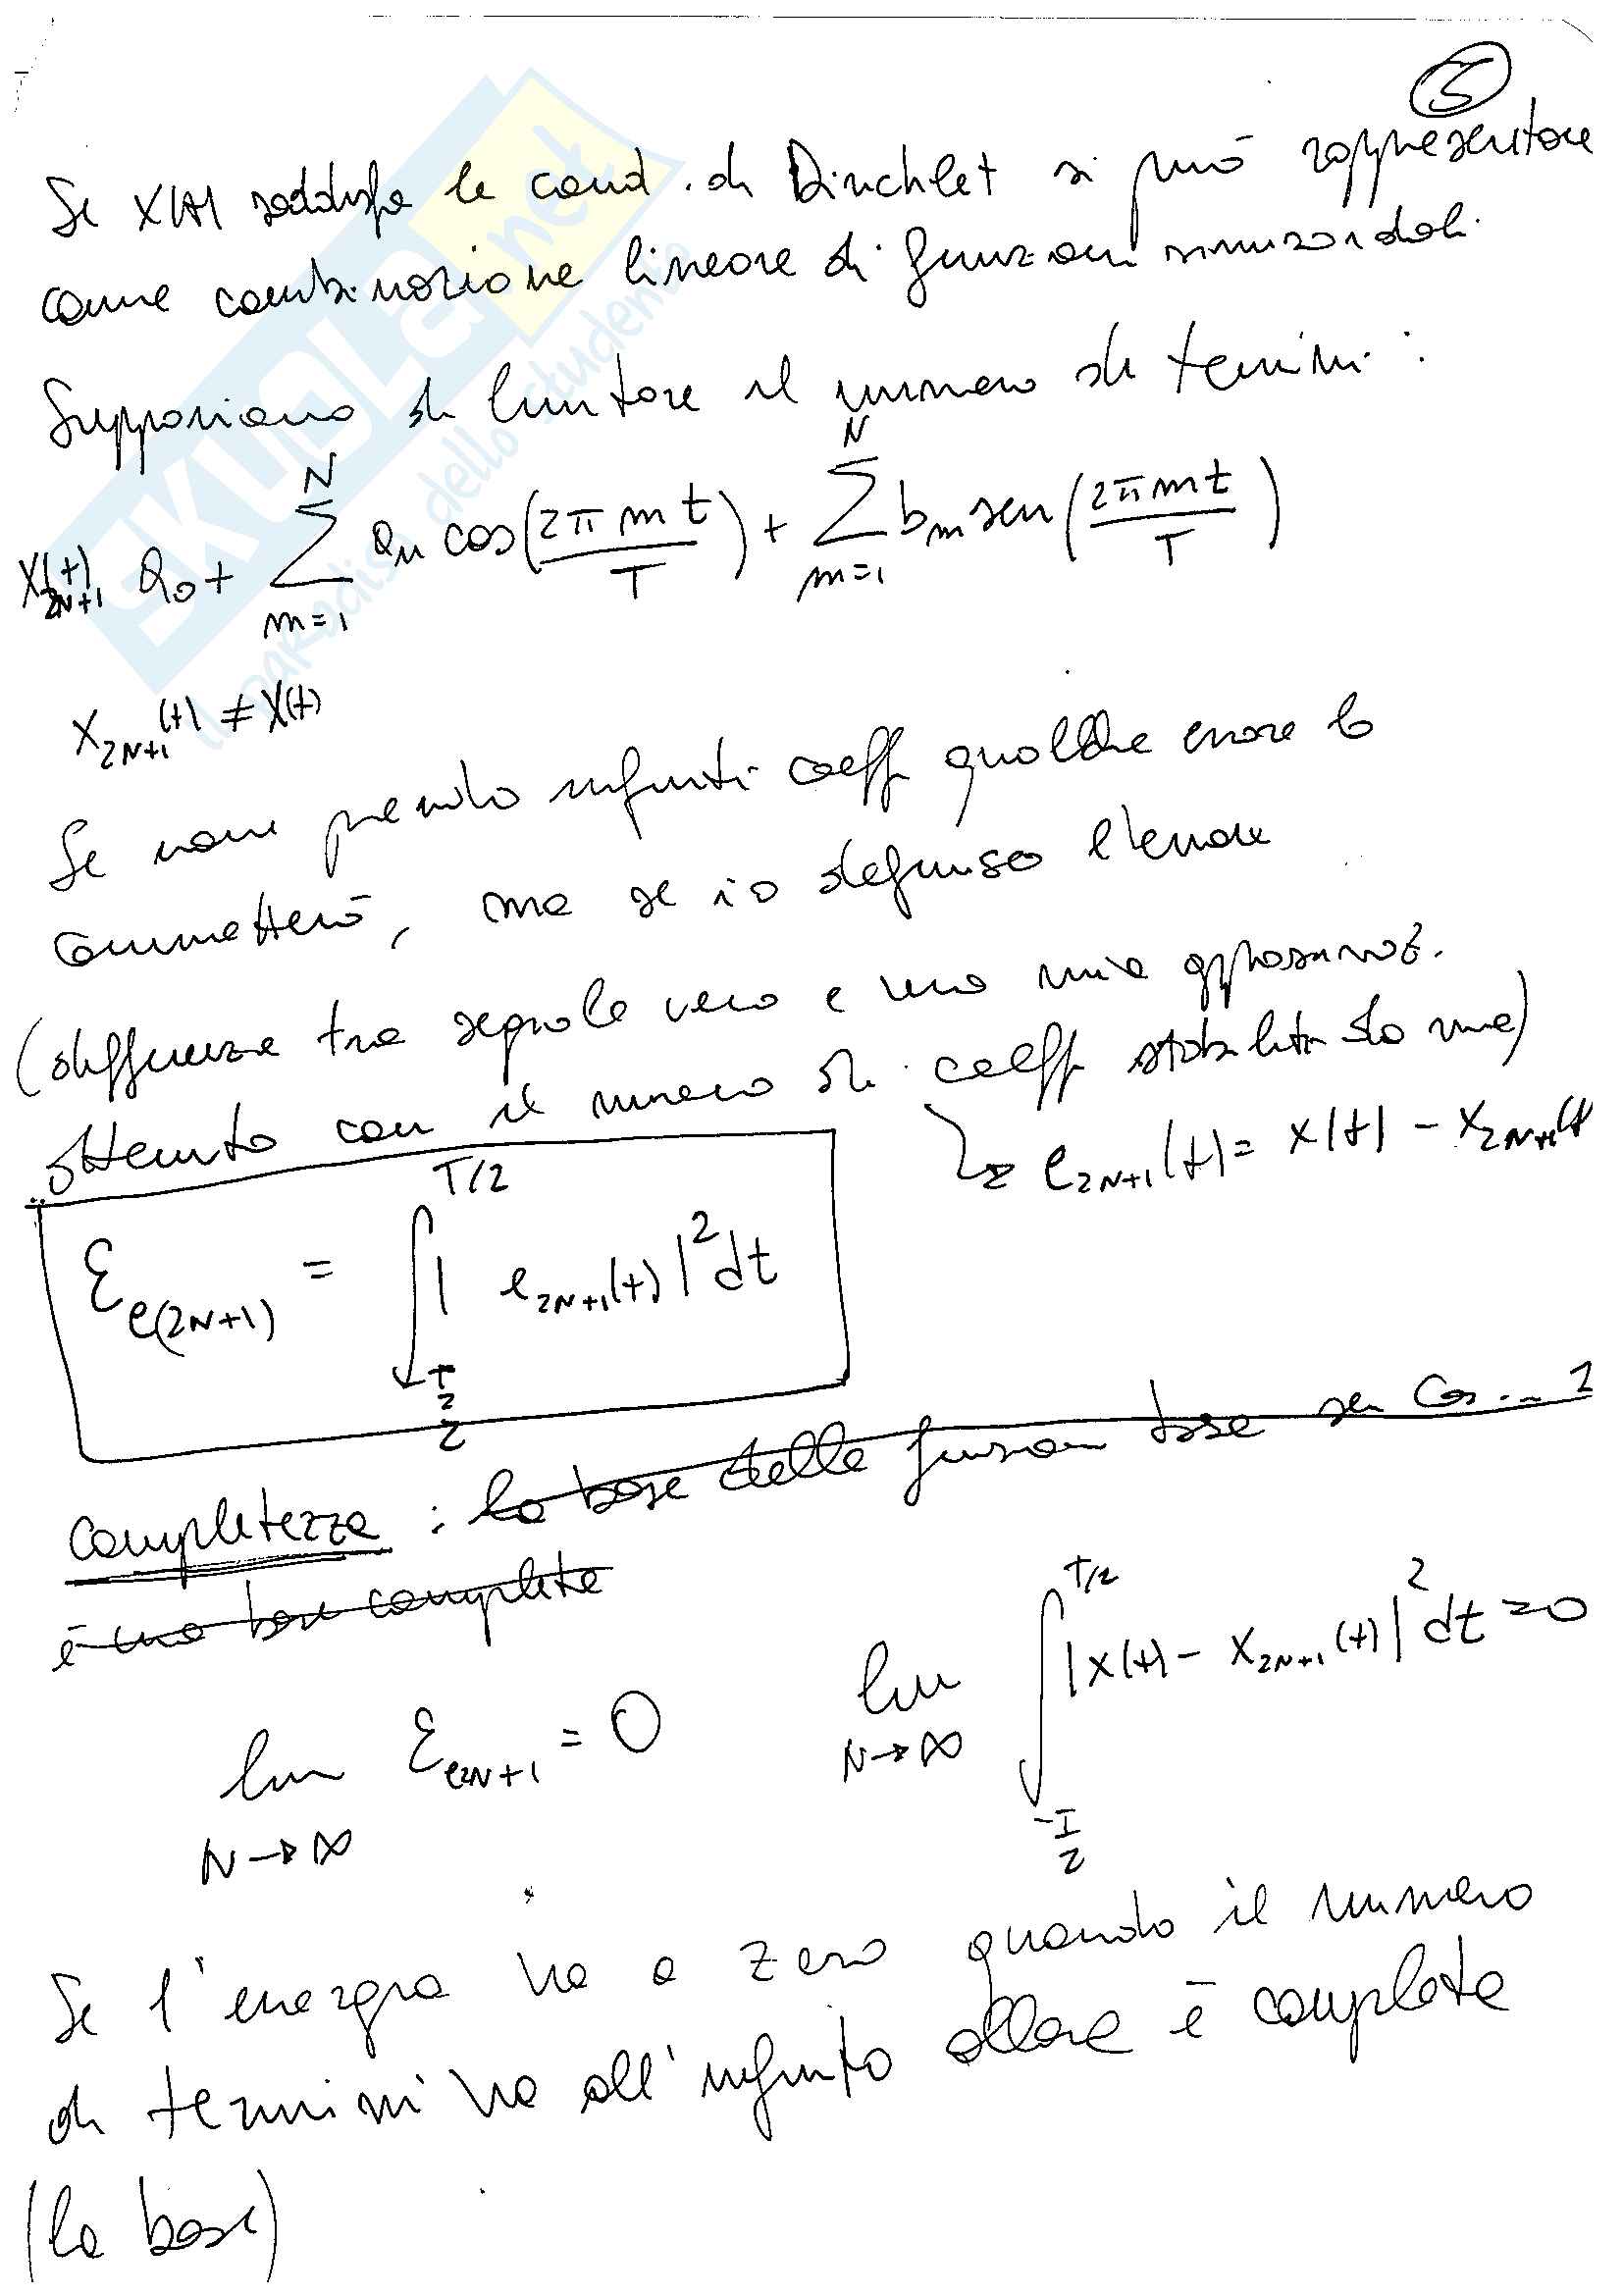 5
Se x(t) soddisfa le cond. di Dirichlet si può rappresentare
come combinazione lineare di funzioni sinusoidali.
Supponiamo di limitare il numero di termini:
x_{2N+1}(t) a_0 + \sum_{m=1}^{N} a_m cos(2πmt/T) + \sum_{m=1}^{N} b_m sen(2πmt/T)
x_{2N+1}(t) ≠ x(t)
Se non prendo infiniti coeff qualche errore lo
commetterò, ma se io definisco l'errore
(differenza tra segnale vero e una mia approssimaz.
ottenuto con il numero di coeff stabiliti da me)
e_{2N+1}(t) = x(t) - x_{2N+1}(t)
ℰ_{e(2N+1)} = ∫_{-T/2}^{T/2} | e_{2N+1}(t) |^2 dt
Completezza : la base delle funzioni base sen cos ...
è una base completa
lim_{N→∞} ℰ_{e2N+1} = 0   lim_{N→∞} ∫_{-T/2}^{T/2} | x(t) - x_{2N+1}(t) |^2 dt = 0
Se l'energia va a zero quando il numero
di termini va all'infinito allora è completa
(la base)
SKUOLA.net
il paradiso dello studente